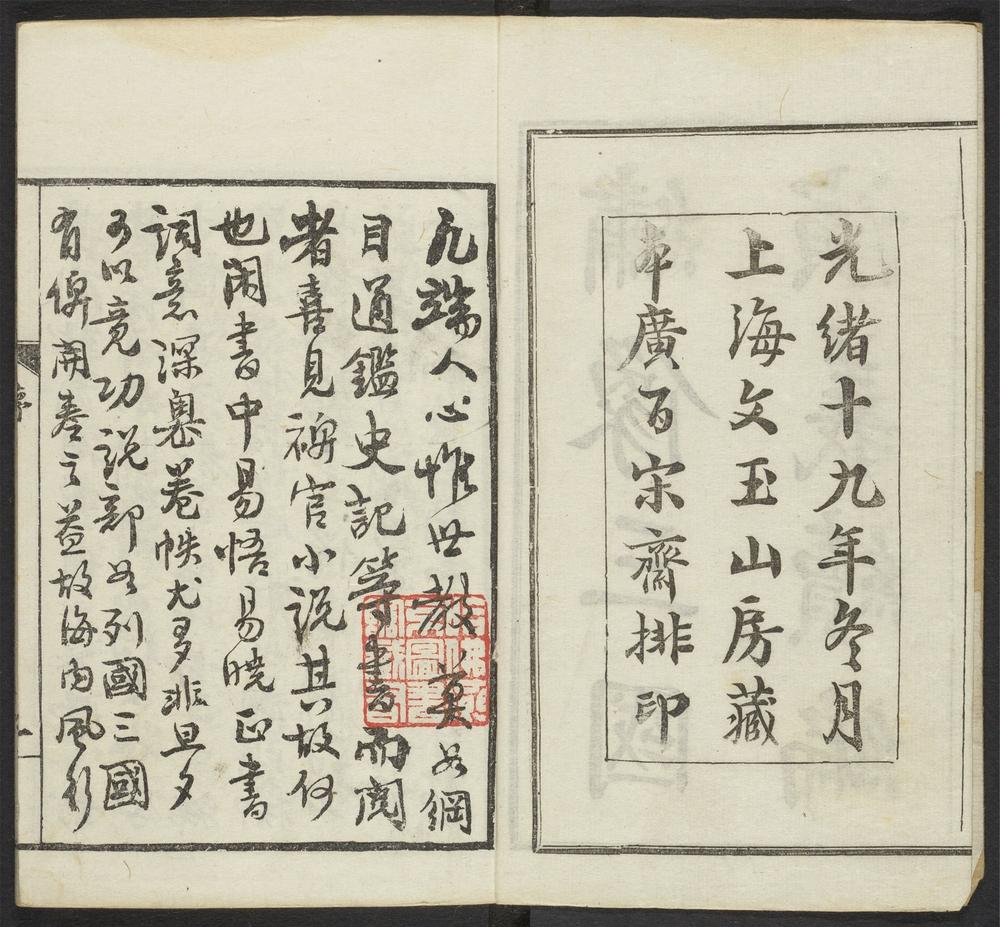 光緒十九年冬月
上海文玉山房藏
本廣百宋齋排印
凡端人心惟世教莫如綱
目通鑑史記等書而閱
者喜見稗官小說其故何
也閑書中易悟易曉正書
詞意深奧卷帙尤多非旦夕
可以竟功說部如列國三國
有俾開卷之益故海內風行